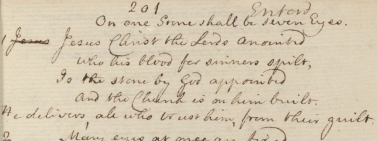 201
Enford
On one Stone shall be seven Eyes.
1 Jesus Jesus Christ the Lords anointed
Who his blood for sinners spilt,
Is the stone by God appointed
And the Church is on him built.
He delivers, all who trust him, from their guilt.
2 Many eyes at once are fixed